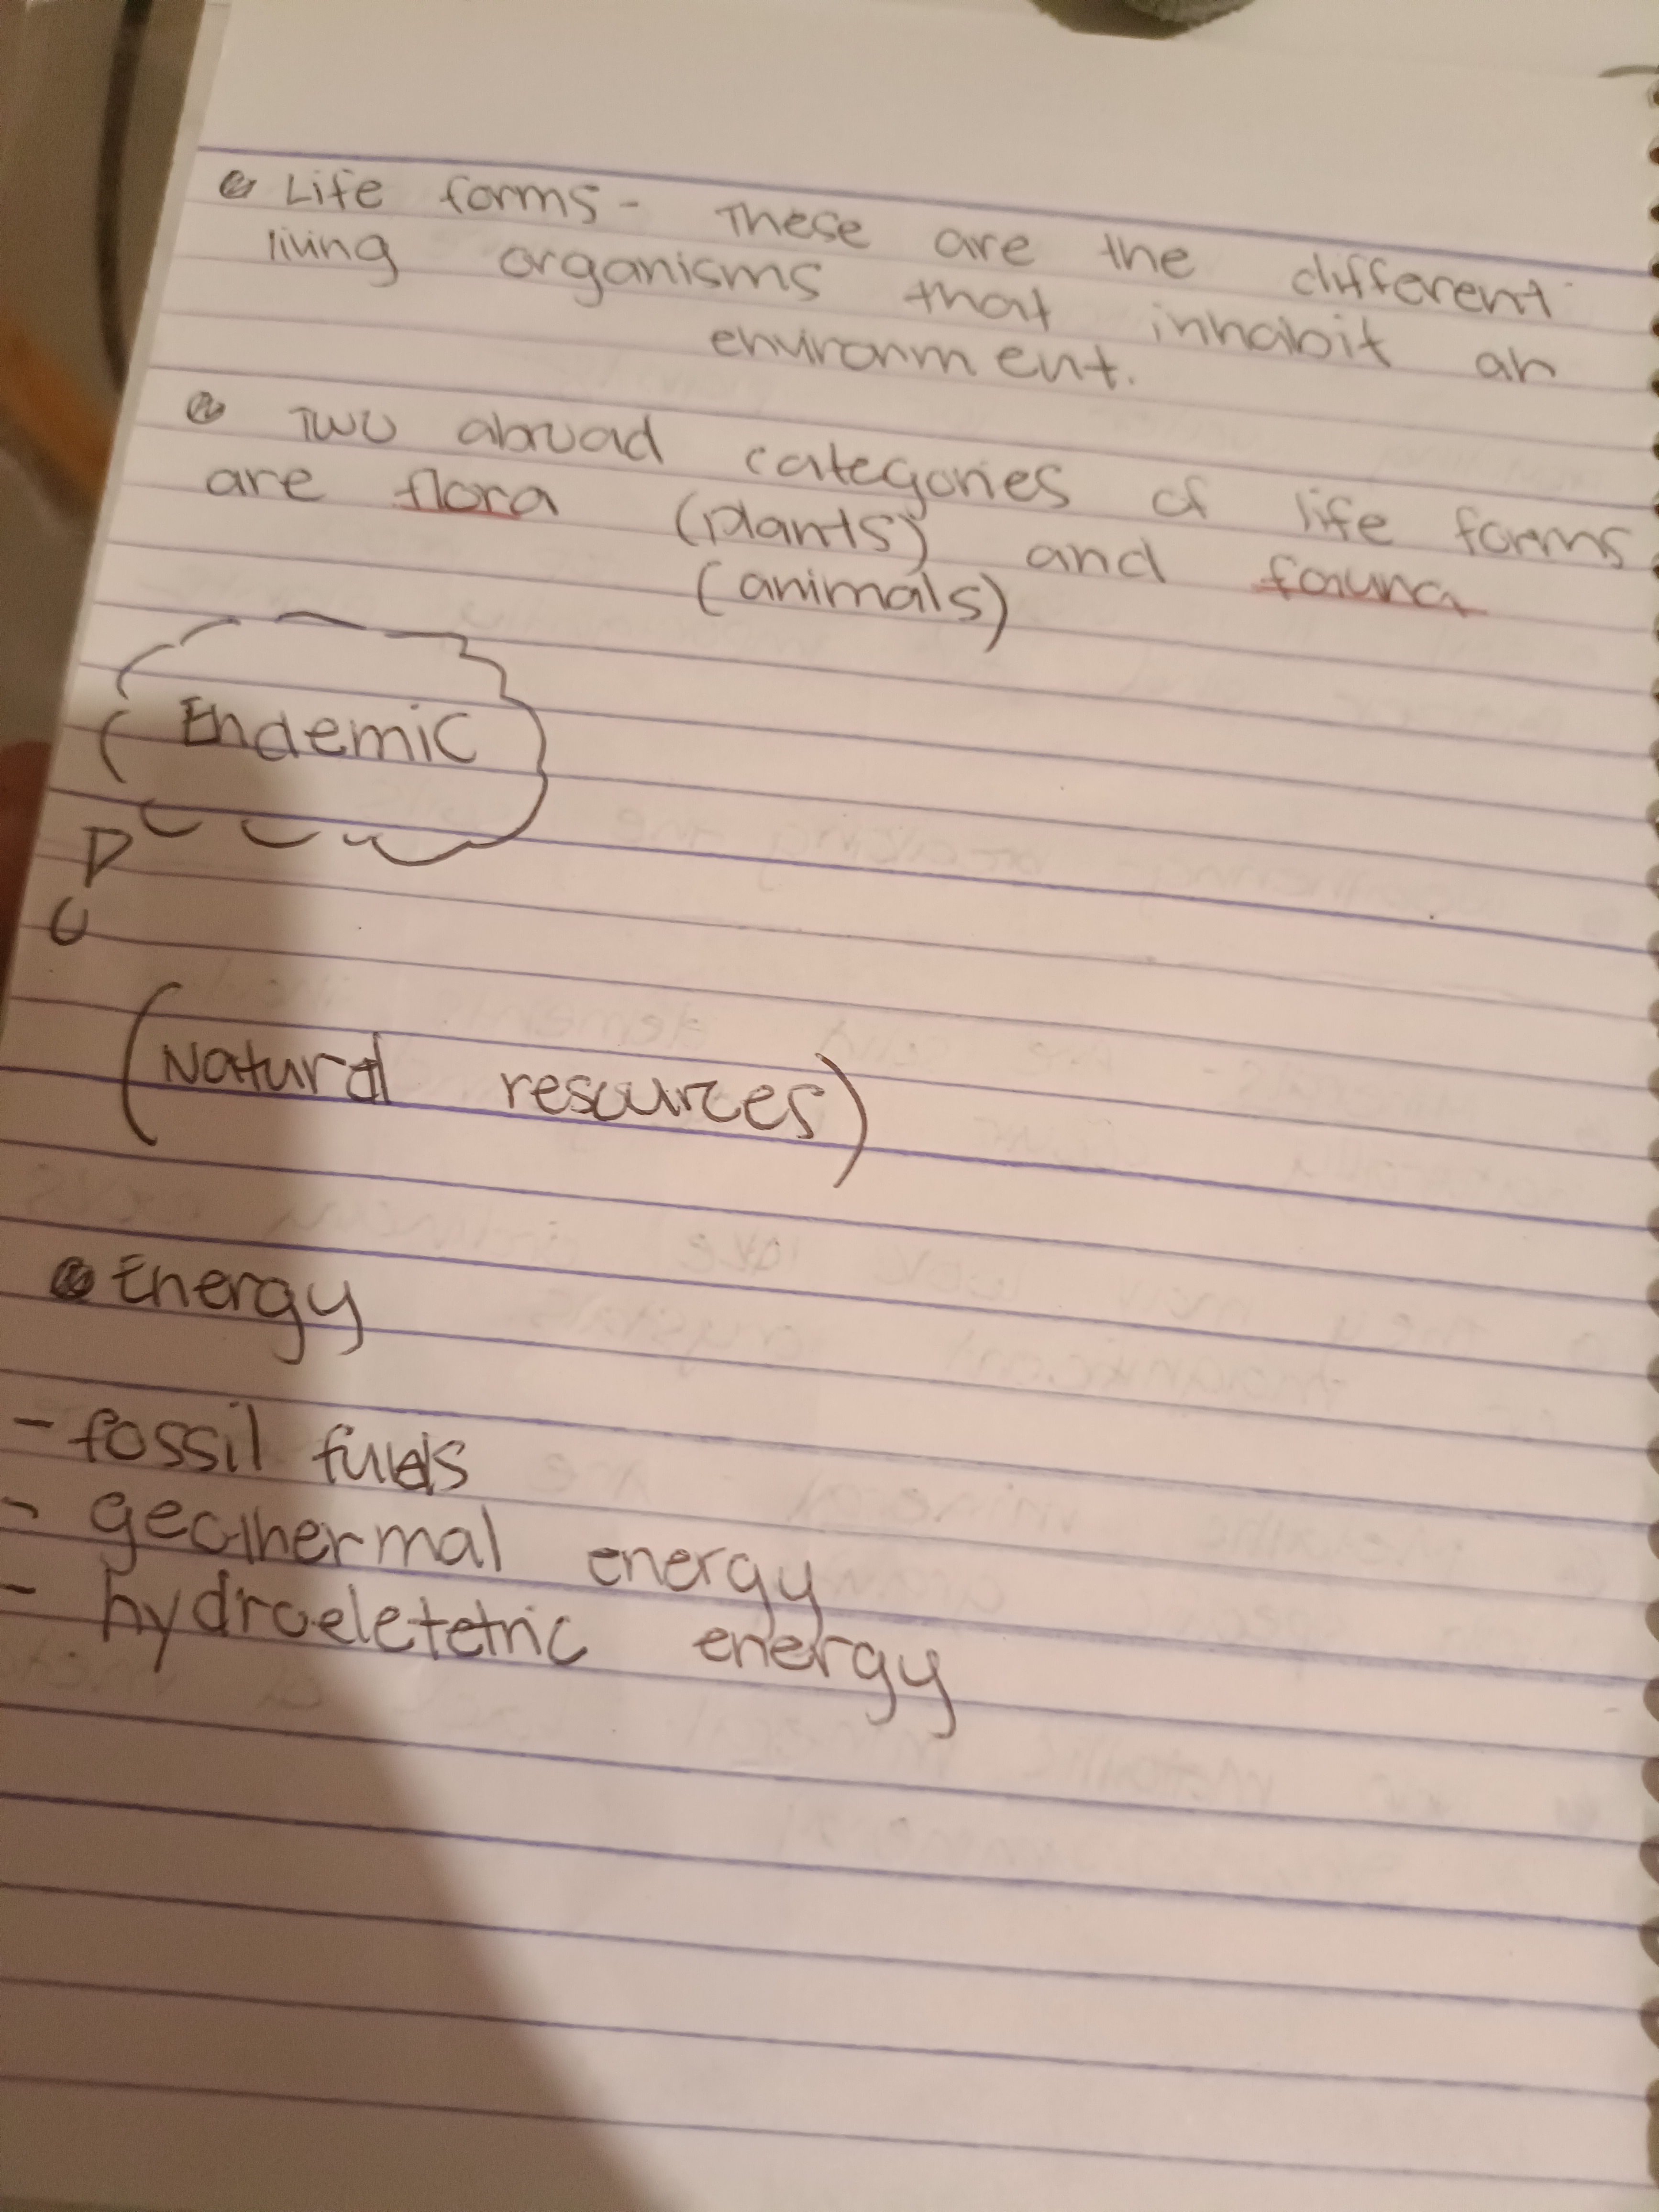 Life forms - These are the different
living organisms that inhabit an
environment.
Two abroad categories of life forms
are flora (plants) and fauna
(animals)
Endemic
(Natural resources)
Energy
- fossil fuels
- geothermal energy
- hydroeletetric energy